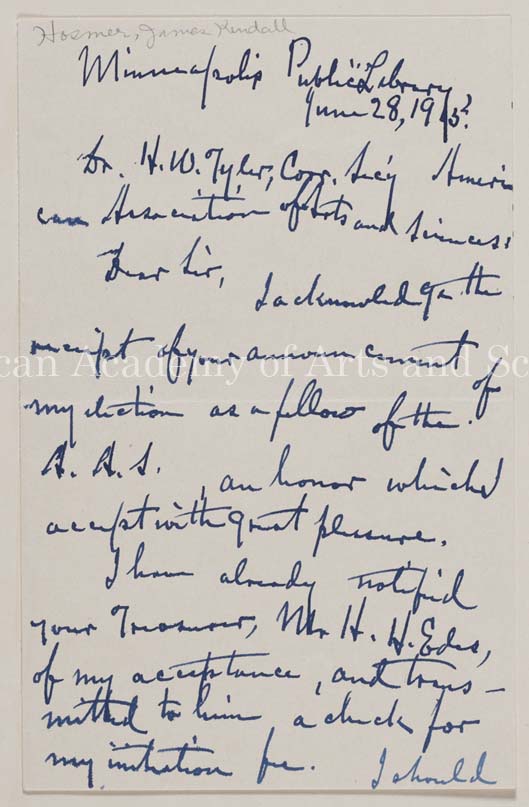 Hosmer, James Kendall
Minneapolis Public Library
June 28, 1915?
Dr. H. W. Tyler, Corr. Sec'y Ameri
can Association of Arts and Sciences:
Dear Sir,
I acknowledge the
receipt of your announcement of
can Academy of Arts and Sc
my election as a fellow of the
A. A. S., an honor which I
accept with great pleasure.
I have already notified
your Treasurer, Mr. H. H. Edes,
of my acceptance, and trans-
mitted to him a check for
my initiation fee. I should